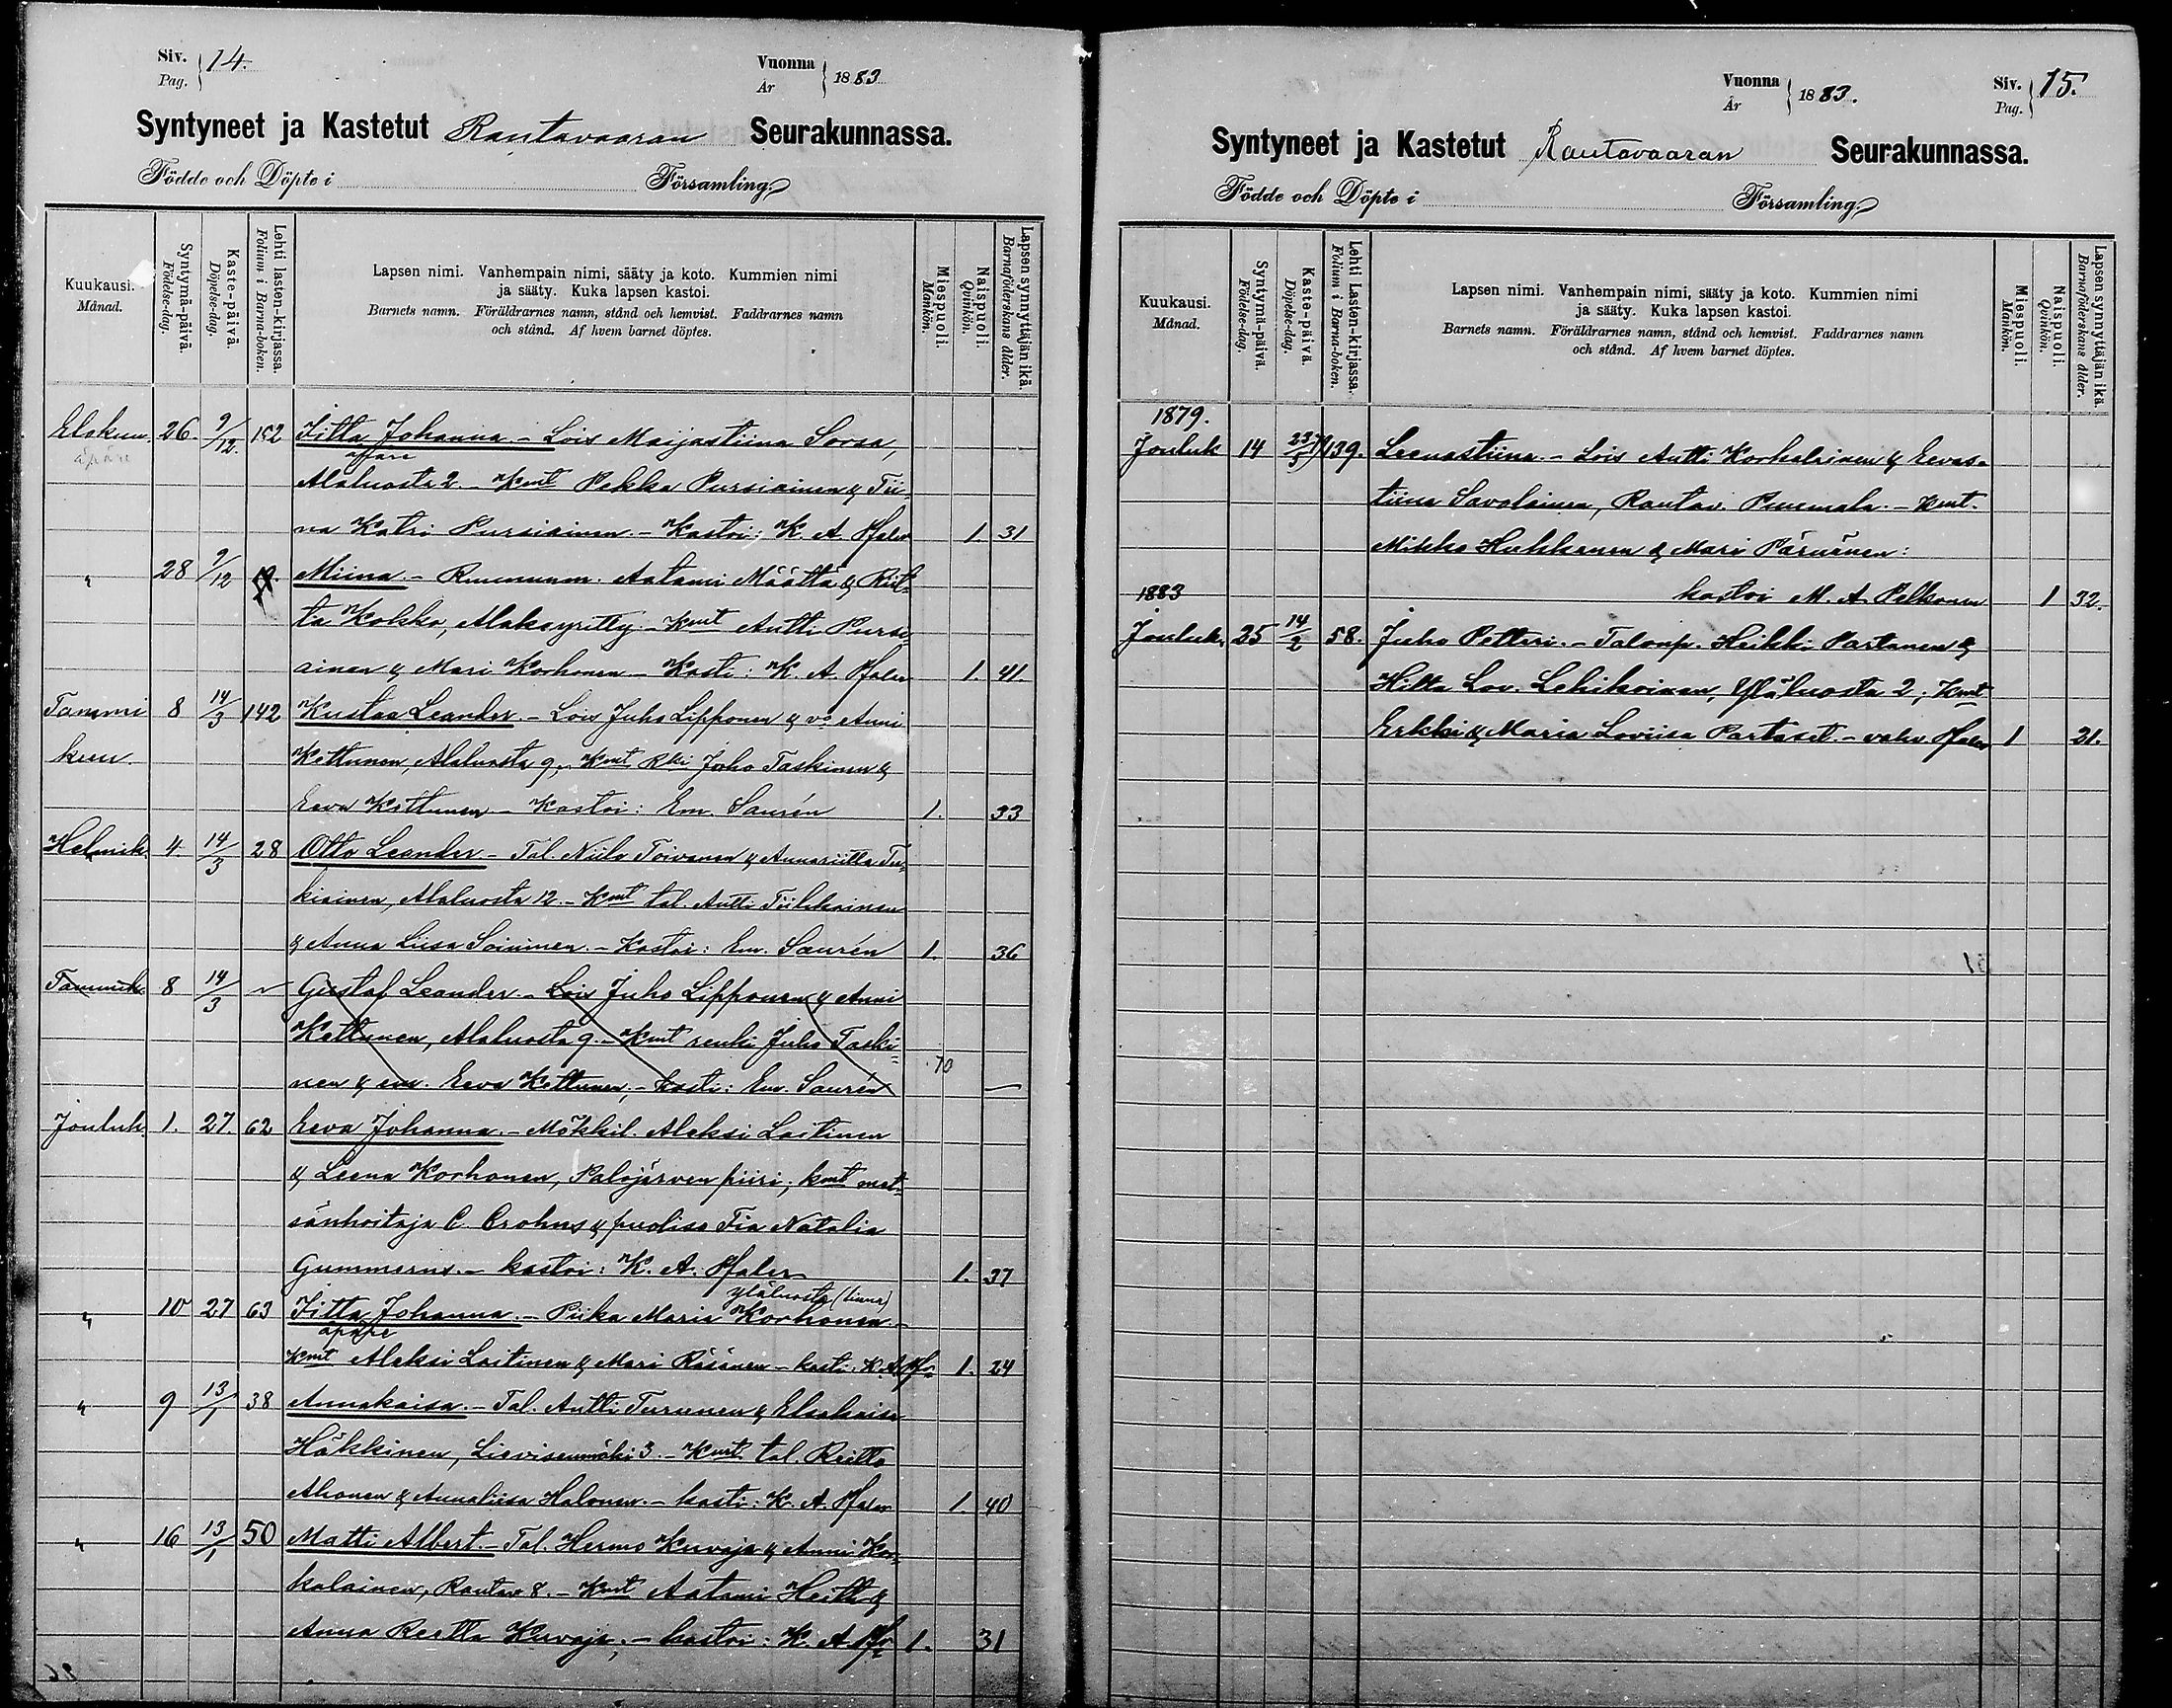 Siv. 14.
Pag.
Vuonna 1883
År
Syntyneet ja Kastetut Rautavaaran Seurakunnassa.
Födde och Döpte i Församling.
Kuukausi. Månad.
Syntymä-päivä. Födelse-dag.
Kaste-päivä. Döpelse-dag.
Lehti lasten-kirjassa. Folium i Barna-boken.
Lapsen nimi. Vanhempain nimi, sääty ja koto. Kummien nimi
ja sääty. Kuka lapsen kastoi.
Barnets namn. Föräldrarnes namn, stånd och hemvist. Faddrarnes namn
och stånd. Af hvem barnet döptes.
Miespuoli. Mankön.
Naispuoli. Qvinkön.
Lapsen synnyttäjän ikä. Barnaföderskans ålder.
Elokuu. 26. 9/12. 152 Iitta Johanna. - Lois Maijastiina Sorsa,
äpäre äpäre
Alaluosta 2. - Kmt Pekka Pursiainen & Tii-
na Katri Pursiainen. - Kastoi: K. A. Pfaler 1 31
" 28 9/12 Miina. - Aatami Määttä & Riit-
ta Kokko, Alakeyritty. - Kmt Antti Pursi-
ainen & Mari Korhonen - Kasti: K. A. Pfaler 1. 41.
Tammi 8 14/3 142 Kustaa Leander. - Lois Juho Lipponen & vo Anni
kuu. Kettunen, Alaluosta 9. - Kmt Rki Juho Taskinen &
Eeva Kettunen - Kastoi: Em. Saurén 1. 33
Helmik. 4. 14/3 28 Otto Leander - Tal. Niilo Toivanen & Annariitta Tu-
kiainen, Alaluosta 12. - Kmt tal. Antti Tiilikainen
& Anna Liisa Soininen. - Kastoi: Em. Saurén 1. 36
Tammik. 8 14/3 Gustaf Leander - Lois Juho Lipponen & Anni
Kettunen, Alaluosta 9. - Kmt renki Juho Taski-
nen & em. Eeva Kettunen, - kasti: Em. Saurén 10 —
Jouluk. 1. 27. 62 Eeva Johanna. - Mökkil. Aleksi Laitinen
& Leena Korhonen, Palojärven piiri; kmt met-
sänhoitaja C. Crohns & puoliso Fia Natalia
Gummerus. - kastoi: K. A. Pfaler 1. 37
yläluosta (linna)
" 10 27 63 Iitta Johanna. - Piika Maria Korhonen -
äpäre
Kmt Aleksi Laitinen & Mari Räsänen - kasti: K. A. Pf- 1. 24
" 9 13/1 38 Annakaisa. - Tal. Antti Turunen & Elsakaisa
Häkkinen, Lievisenmäki 3. - Kmt tal. Reitto
Ahonen & Annaliisa Halonen. - kasti: K. A. Pfaler 1. 40
" 16 13/1 50 Matti Albert. - Tal. Hermo Kuvaja & Anni Kor-
kalainen, Rautav 8. - Kmt Aatami Heitto &
Anna Reetta Kuvaja, - kastoi: K. A. Pf- 1. 31
Vuonna 1883.
År
Siv. 15.
Pag.
Syntyneet ja Kastetut Rautavaaran Seurakunnassa.
Födde och Döpte i Församling.
Kuukausi. Månad.
Syntymä-päivä. Födelse-dag.
Kaste-päivä. Döpelse-dag.
Lehti Lasten-kirjassa. Folium i Barna-boken.
Lapsen nimi. Vanhempain nimi, sääty ja koto. Kummien nimi
ja sääty. Kuka lapsen kastoi.
Barnets namn. Föräldrarnes namn, stånd och hemvist. Faddrarnes namn
och stånd. Af hvem barnet döptes.
Miespuoli. Mankön.
Naispuoli. Qvinkön.
Lapsen synnyttäjän ikä. Barnaföderskans ålder.
1879.
Jouluk 14 139. Leenastiina. - Lois Antti Korkalainen & Eevas-
tiina Savolainen, Rautav. Puumala. - Kmt.
Mikko Hukkanen & Mari Pärnänen:
1883 kastoi M. A. Pelkonen 1 32.
Jouluk. 25 14/2 58. Juho Petteri. - Talonp. Heikki Partanen &
Hilta Lov. Lehikoinen, Yläluosta 2; Kmt
Erkki & Maria Loviisa Partaset. - vahv. Pfaler 1 31.